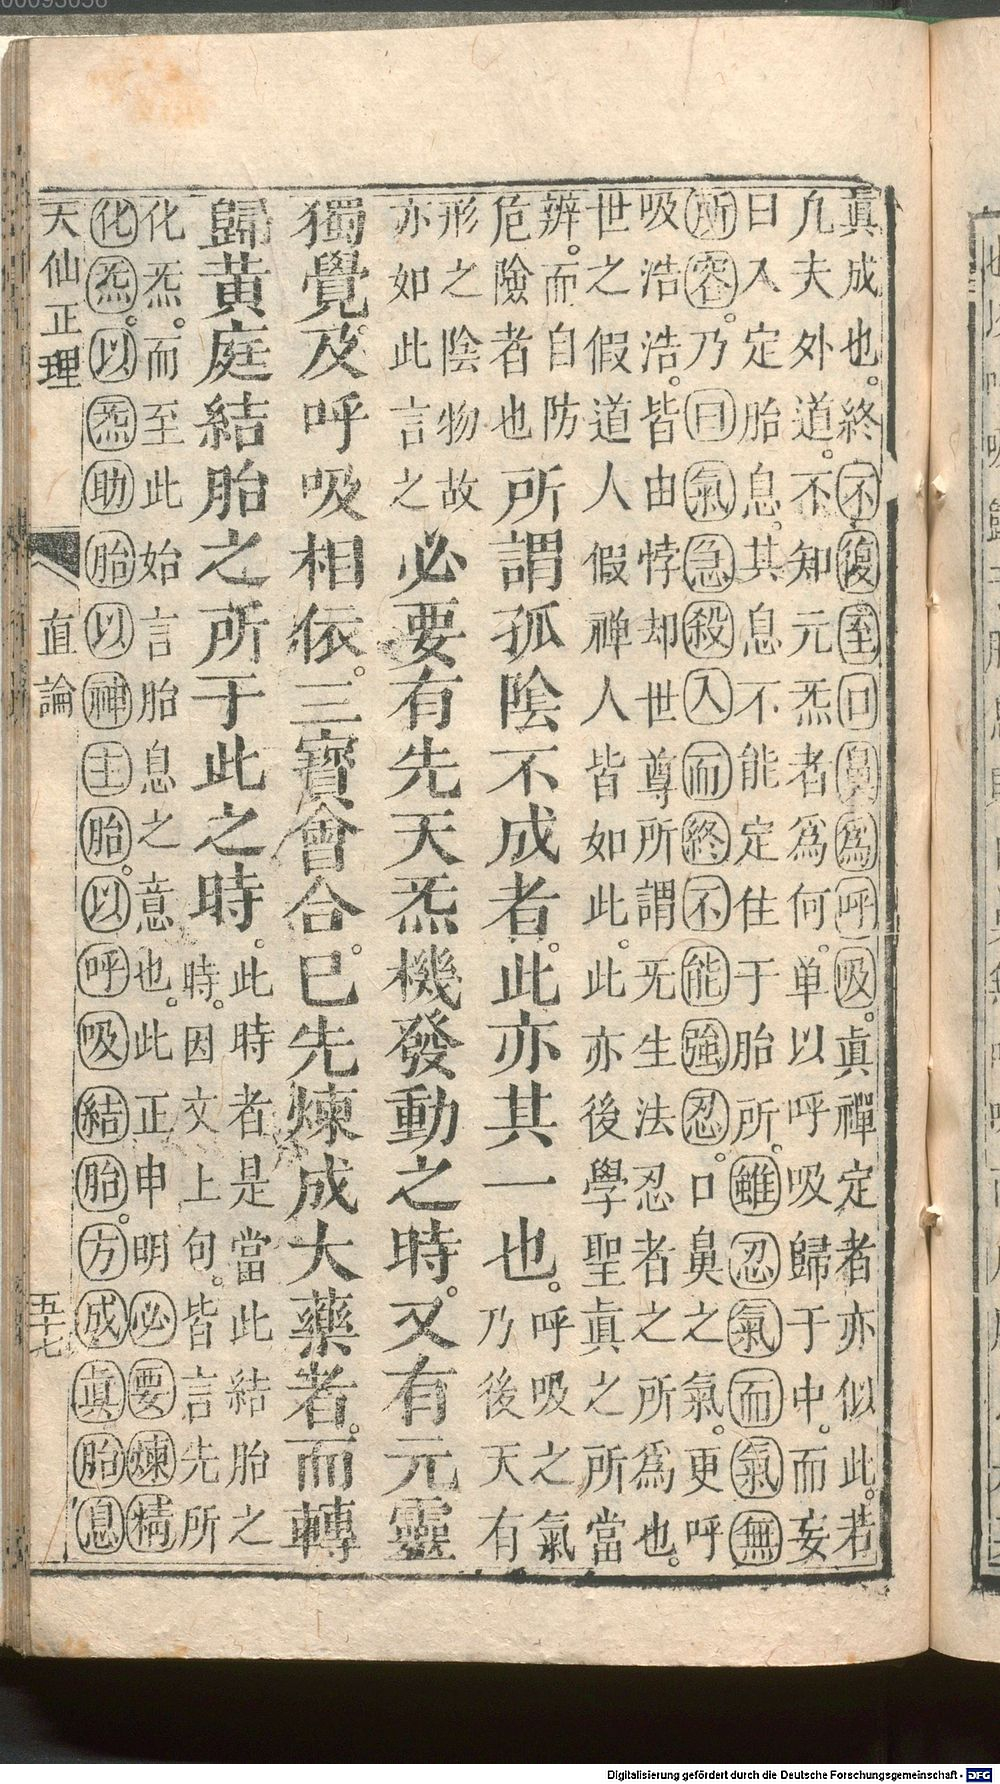 眞成也。終不復至口鼻爲呼吸。眞禪定者亦似此。若
凢夫外道。不知元炁者爲何。单以呼吸歸于中。而妄
曰入定胎息。其息不能定住于胎所。雖忍氣而氣無
所容。乃曰氣急殺人而終不能強忍。口鼻之氣。更呼
吸浩浩。皆由悖却世尊所謂旡生法忍者之所爲也。
世之假道人假禅人皆如此。此亦後學聖眞之所當
辨。而自防
危險者也
所謂孤陰不成者。此亦其一也。
呼吸之氣
乃後天有
形之陰物故
亦如此言之
必要有先天炁機發動之時。又有元靈
獨覺及呼吸相依。三寶會合。已先煉成大藥者。而轉
歸黃庭結胎之所于此之時。
此時者是當此結胎之
時。因文上句。皆言先所
化炁。而至此始言胎息之意也。此正申明必要煉精
化炁。以炁助胎以神主胎。以呼吸結胎。方成眞胎息
天仙正理
直論
五十七
Digitalisierung gefördert durch die Deutsche Forschungsgemeinschaft - DFG